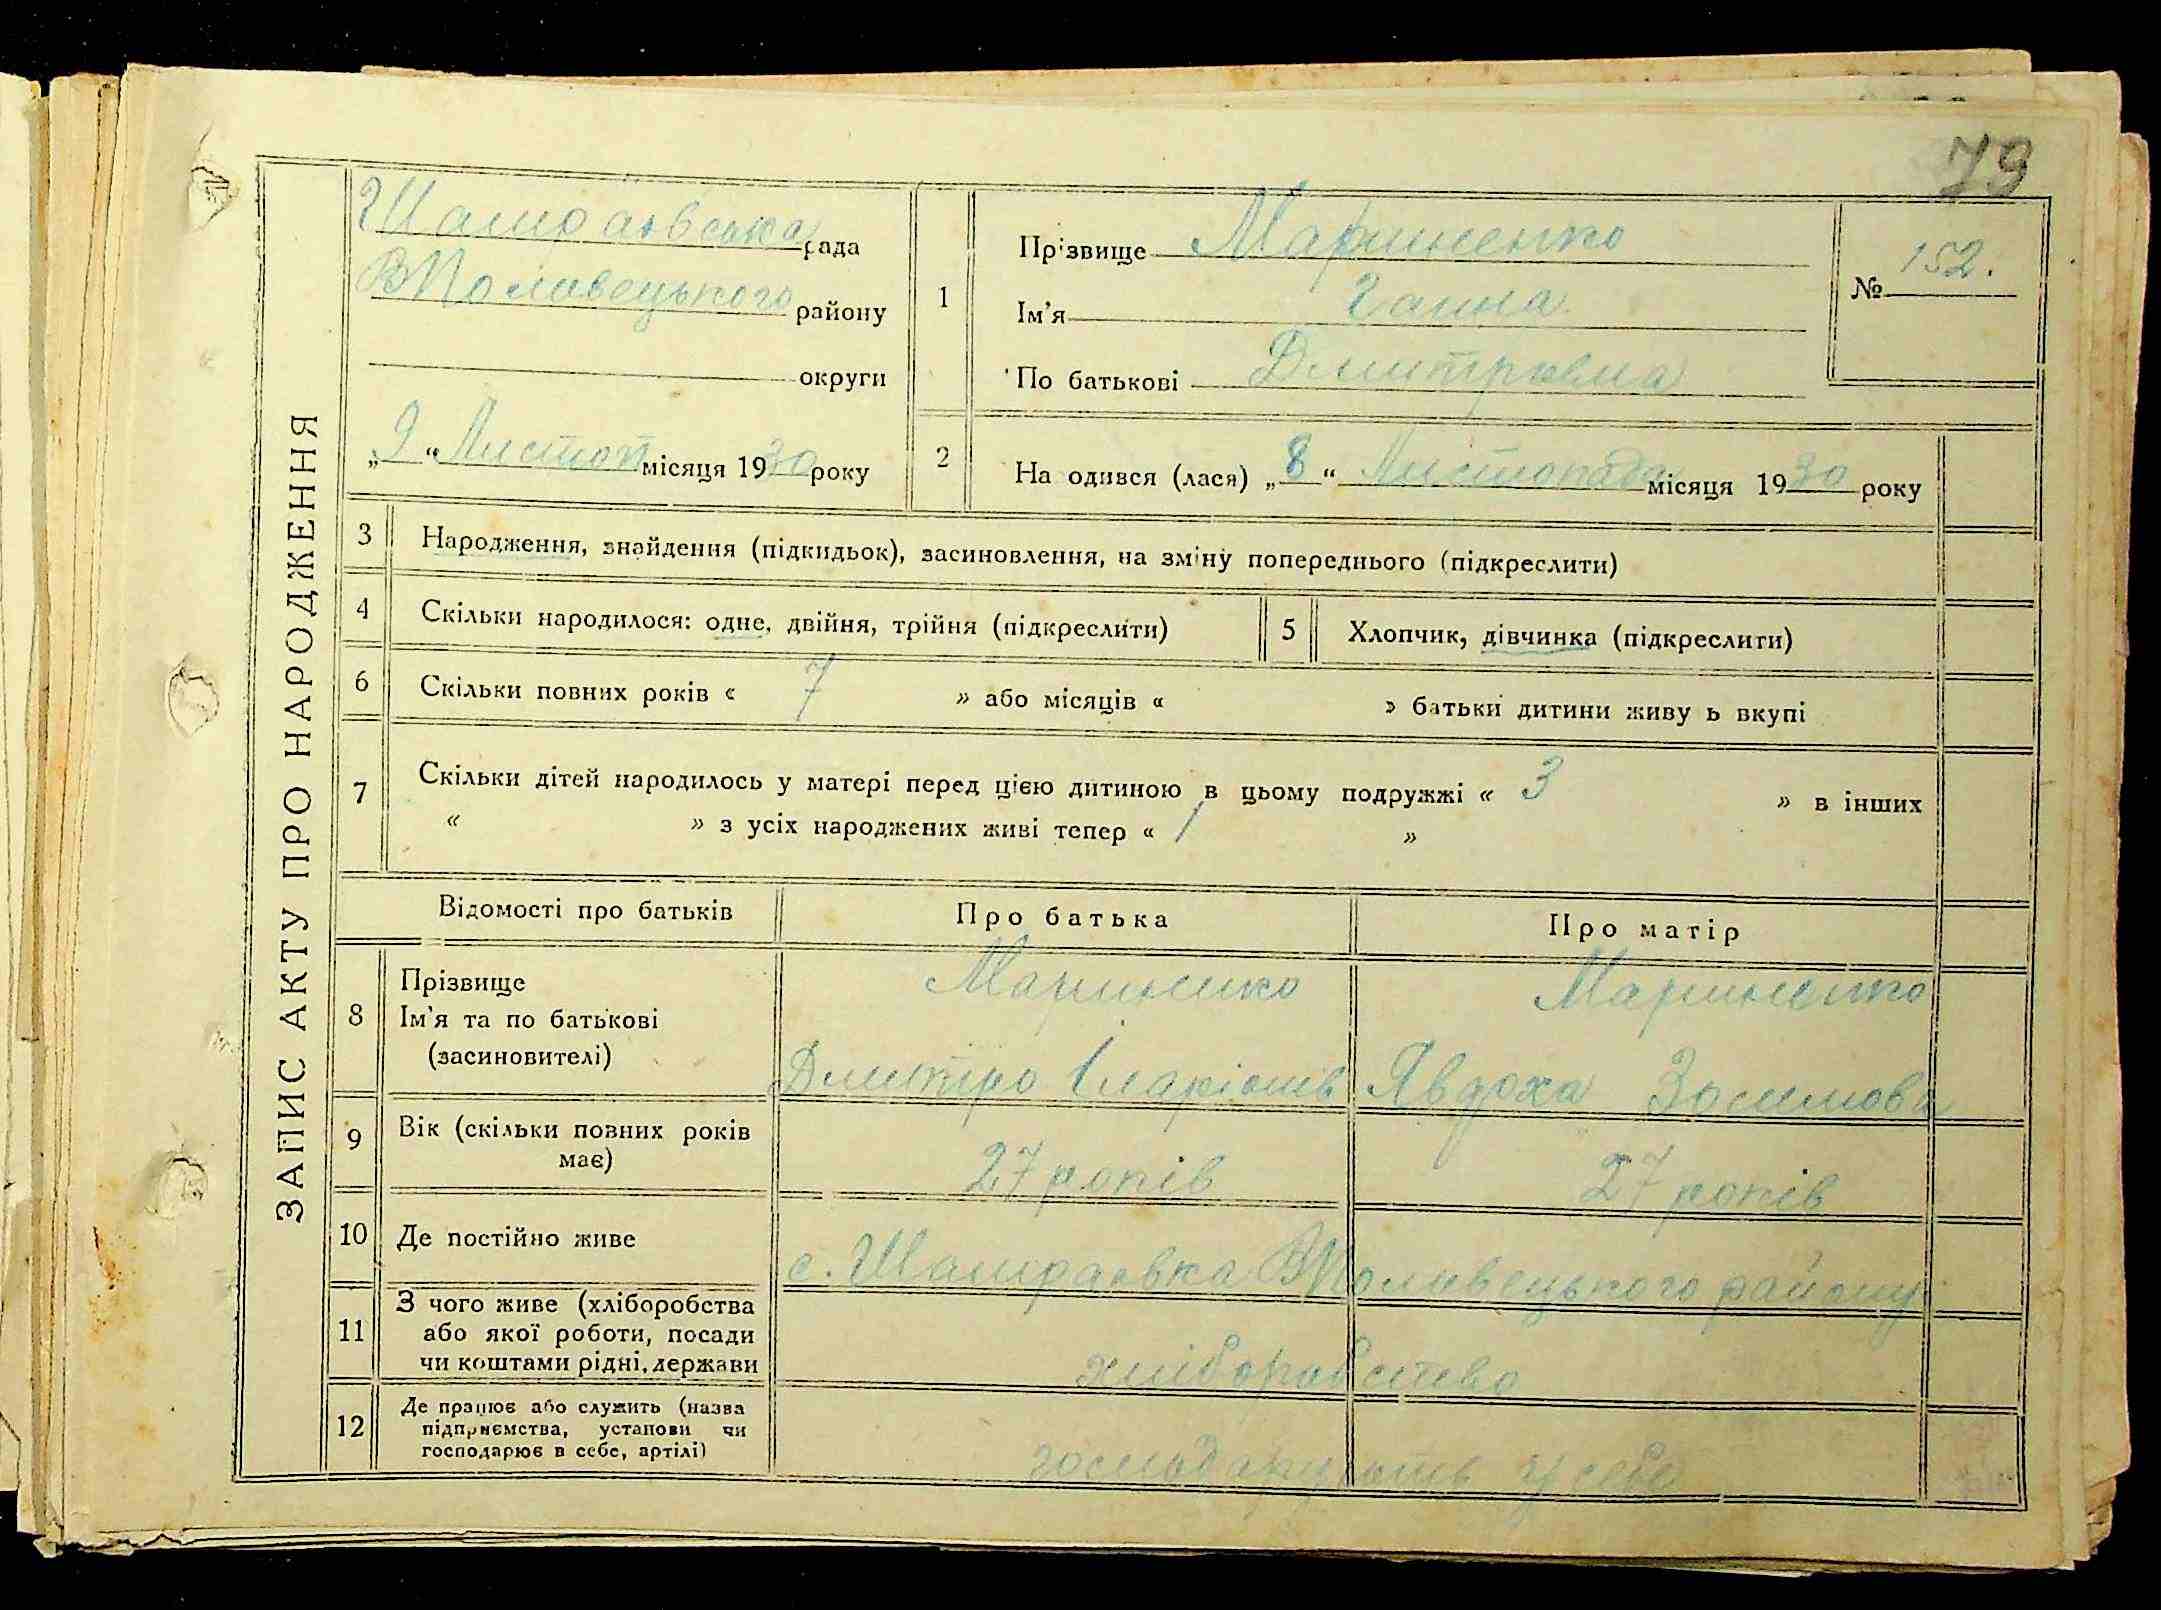 79
ЗАПИС АКТУ ПРО НАРОДЖЕННЯ
Шамраївська рада
ВПоловецького району
округи
„9“ Листоп місяця 1930 року
1
Прізвище Мариненко
Ім'я Ганна
По батькові Дмитрівна
№ 152.
2
На одився (лася) „8“ Листопада місяця 1930 року
3 Народження, знайдення (підкидьок), засиновлення, на зміну попереднього (підкреслити)
4 Скільки народилося: одне, двійня, трійня (підкреслити)
5 Хлопчик, дівчинка (підкреслити)
6 Скільки повних років « 7 » або місяців « » батьки дитини живу ь вкупі
7 Скільки дітей народилось у матері перед цією дитиною в цьому подружжі « 3 » в інших
« » з усіх народжених живі тепер « 1 »
Відомості про батьків Про батька Про матір
8 Прізвище
Ім'я та по батькові
(засиновителі)
Мариненко
Дмитро Іларіонів
Мариненко
Явдоха Зосимова
9 Вік (скільки повних років
має)
27 років
27 років
10 Де постійно живе
с. Шамраївка ВПоловецького району
11 З чого живе (хліборобства
або якої роботи, посади
чи коштами рідні, держави
хліборобство
12 Де працює або служить (назва
підприємства, установи чи
господарює в себе, артілі)
господарують у себе